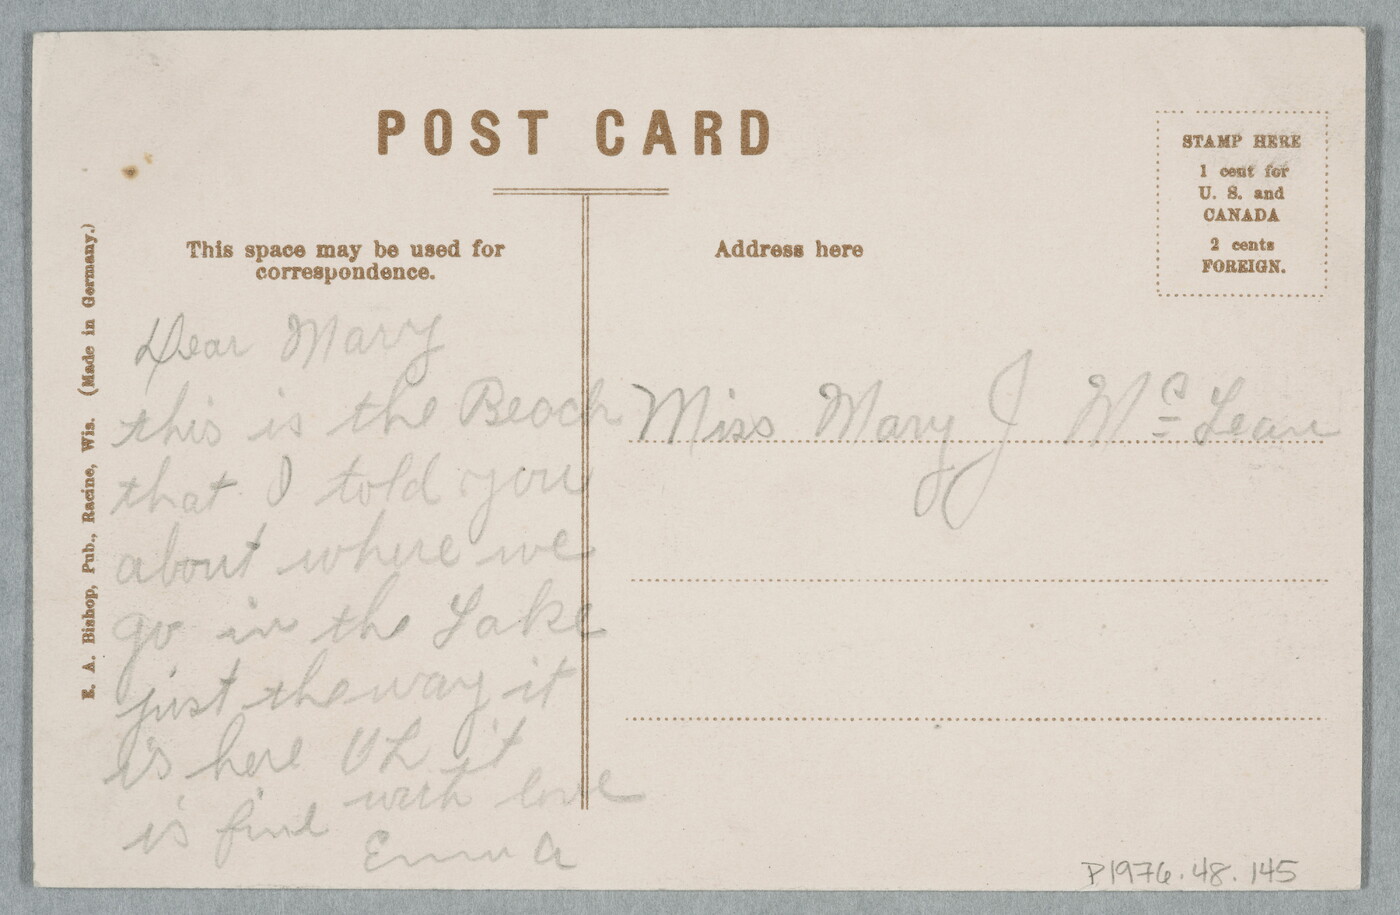 POST CARD
STAMP HERE
1 cent for
U. S. and
CANADA
2 cents
FOREIGN.
This space may be used for
correspondence.
Address here
E. A. Bishop, Pub., Racine, Wis. (Made in Germany.)
Dear Mary
this is the Beach
that I told you
about where we
go in the Lake
just the way it
is here Oh it
is fine with love
Emma
Miss Mary J Mc Lean
P1976.48.145